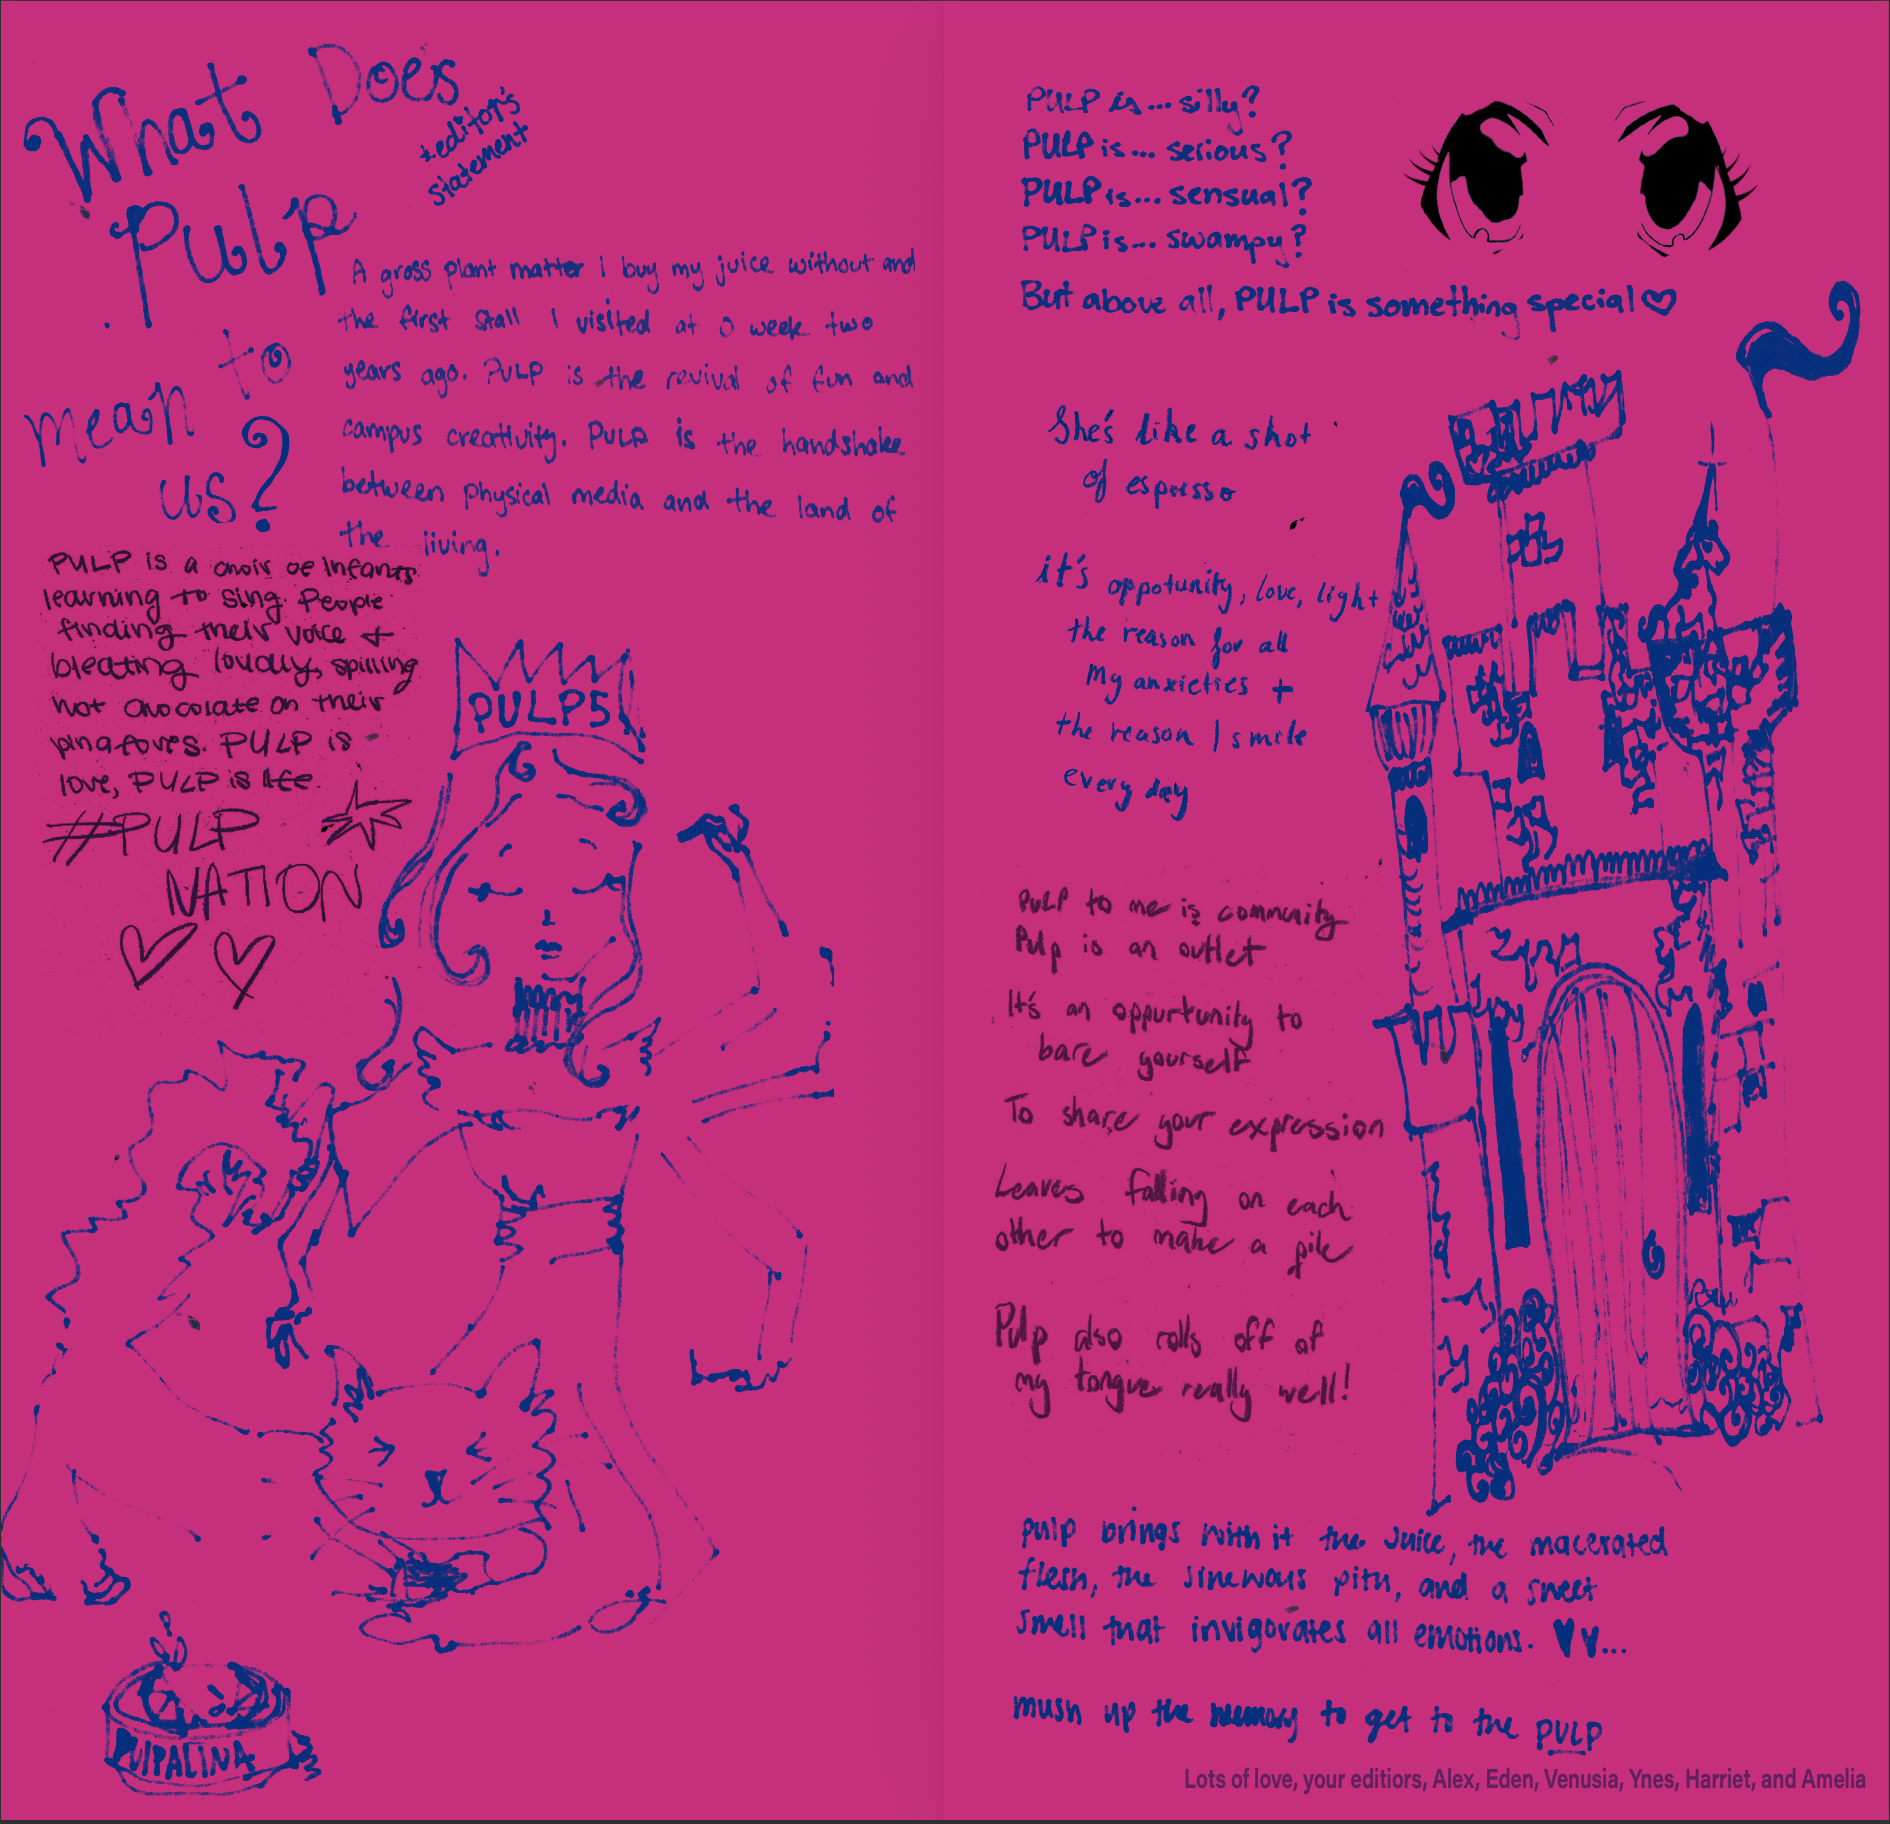 What Does
Pulp
mean to
us?
+editor's
statement
A gross plant matter I buy my juice without and
the first stall I visited at O week two
years ago. PULP is the revival of fun and
campus creativity. PULP is the handshake
between physical media and the land of
the living.
PULP is a choir of infants
learning to sing. People
finding their voice +
bleating loudly, spilling
hot chocolate on their
pinafores. PULP is
love, PULP is life.
#PULP
NATION
PULP5
PULPALINA
PULP is... silly?
PULP is... serious?
PULP is... sensual?
PULP is... swampy?
But above all, PULP is something special
She's like a shot
of espresso
it's oppotunity, love, light
the reason for all
My anxieties +
the reason I smile
every day
PULP to me is community
Pulp is an outlet
It's an oppurtunity to
bare yourself
To share your expression
Leaves falling on each
other to make a pile
Pulp also rolls off of
my tongue really well!
pulp brings with it the juice, the macerated
flesh, the sinewous pith, and a sweet
smell that invigorates all emotions. ♥♥...
mush up the memory to get to the PULP
Lots of love, your editiors, Alex, Eden, Venusia, Ynes, Harriet, and Amelia